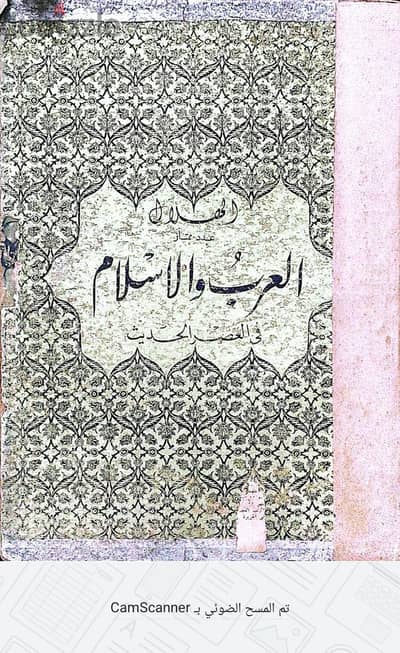 الهلال
عدد ممتاز
العرب والإسلام
في العصر الحديث
تم المسح الضوئي بـ CamScanner